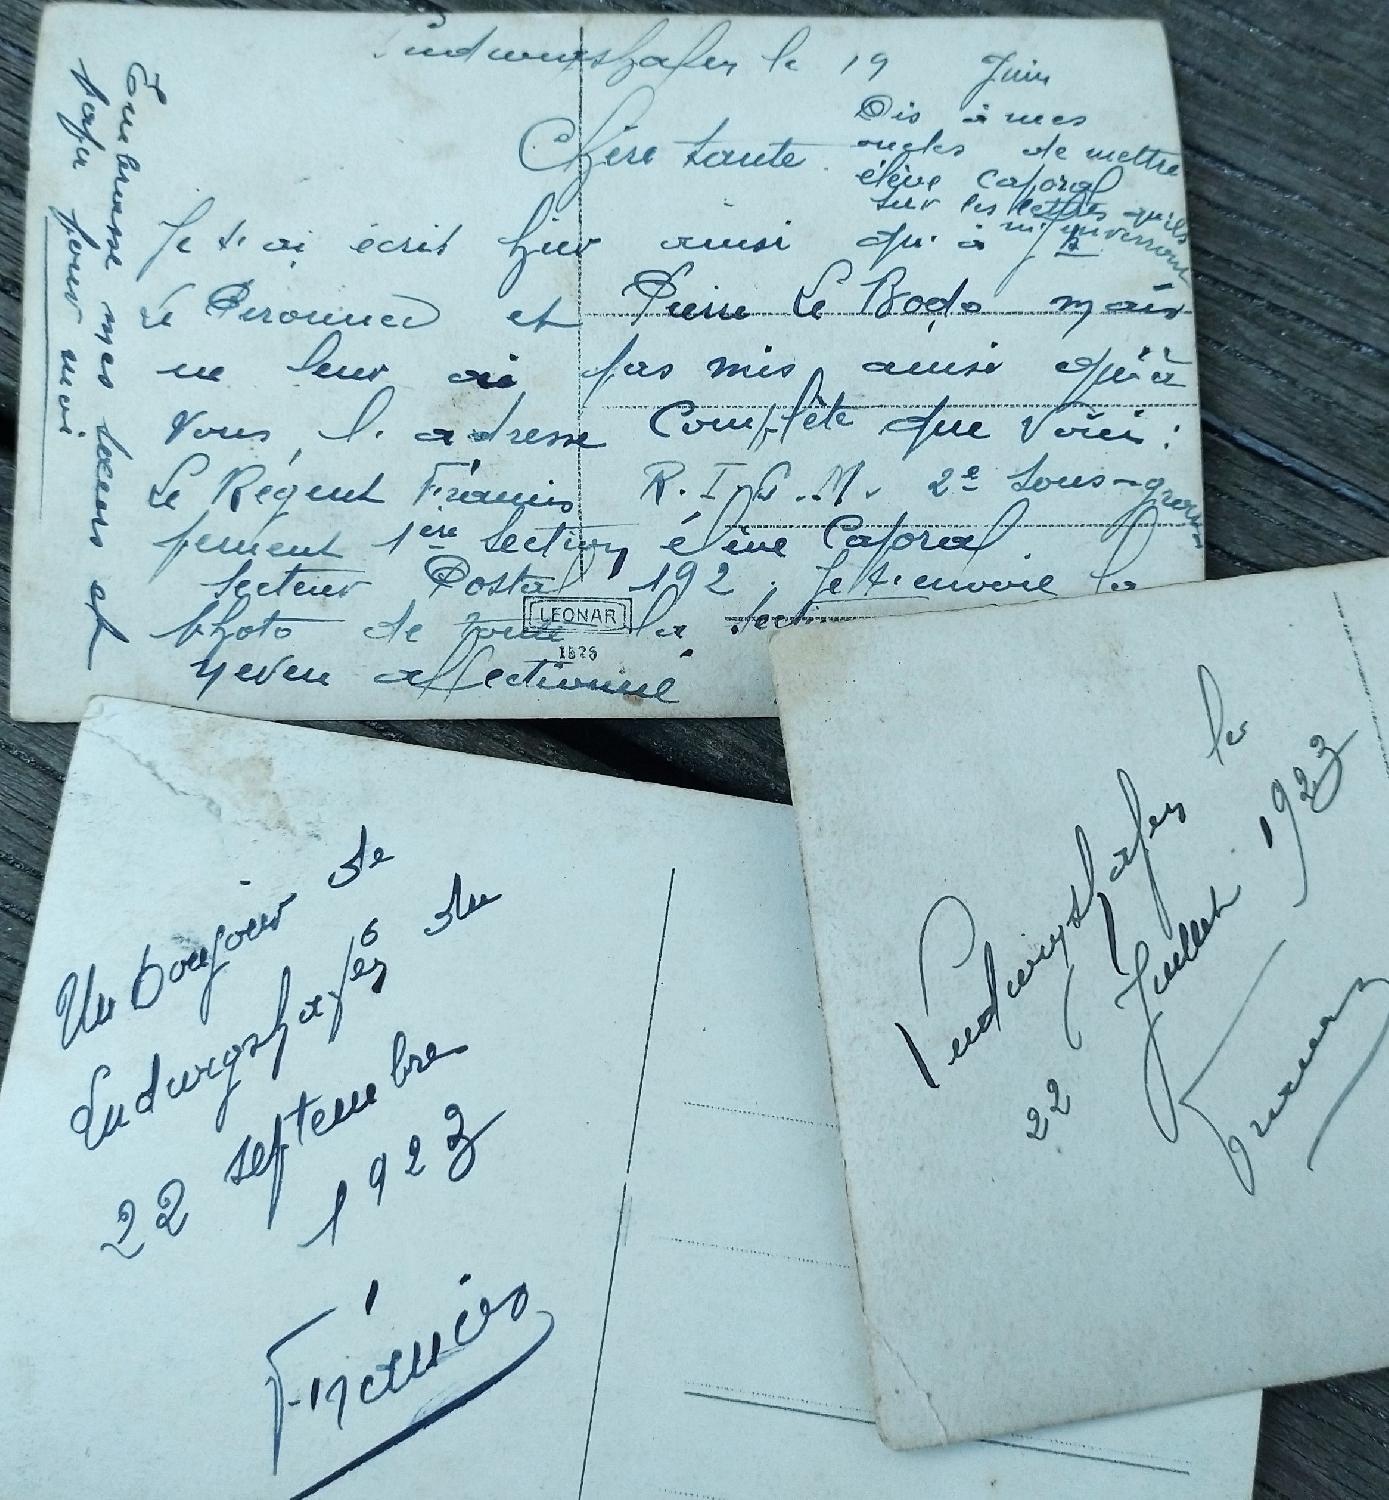 Ludwigshafen le 19 Juin
Chère tante
Dis à mes
oncles de mettre
élève Caporal
sur les lettres qu'ils
m'enverront
Je t'ai écrit hier ainsi qu'à
Le et Pierre Le mais
ne leur ai pas mis ainsi qu'à
vous l'adresse Complète que voici :
Le Régent Francis R.I.C.M. 2e sous-grou
pement 1ère Section élève Caporal.
Secteur Postal 192. Je t'envoie la
photo de toute la section
neveu affectionné
Embrasse mes sœurs et
papa pour moi
LEONAR
1826
Un bonjour de
Ludwigshafen du
22 septembre
1923
Francis
Ludwigshafen le
22 Juillet 1923
Francis